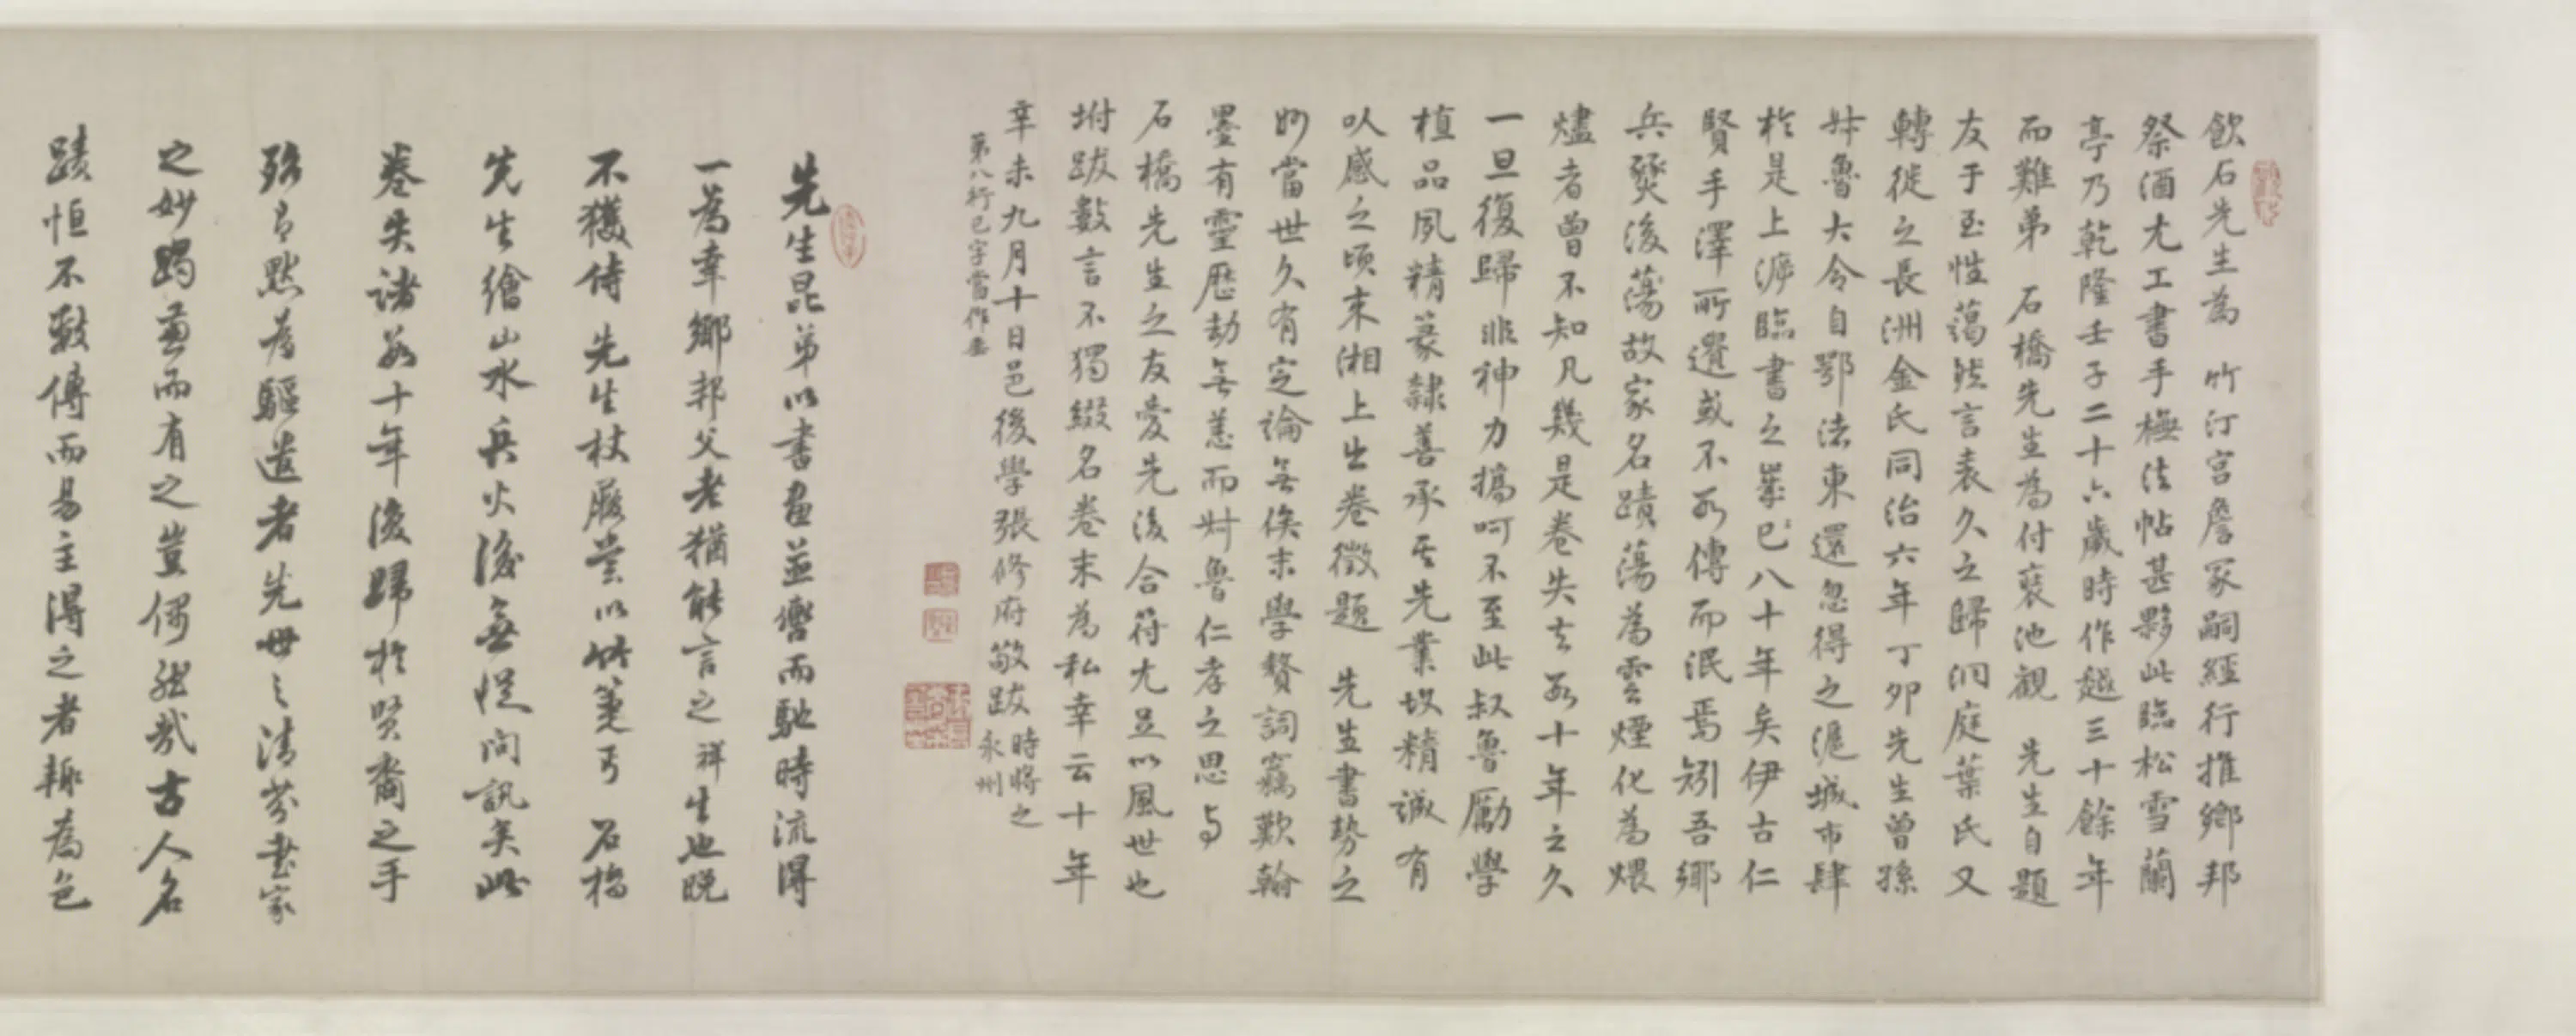 飲石先生為 竹汀宮詹冢嗣經行推鄉邦
祭酒尤工書手橅法帖甚夥此臨松雪蘭
亭乃乾隆壬子二十六歲時作越三十餘年
而難弟 石橋先生為付裝池觀 先生自題
友于至性藹然言表久之歸洞庭葉氏又
轉徙之長洲金氏同治六年丁卯先生曾孫
廾魯大令自鄂法東還忽得之滬城市肆
於是上泝臨書之歲巳八十年矣伊古仁
賢手澤所遺或不再傳而泯焉矧吾鄉
兵燹後蕩故家名蹟蕩為雲煙化為煨
燼者曾不知凡幾是卷失去數十年之久
一旦復歸非神力撝呵不至此叔魯勵學
植品夙精篆隸善承其先業故精誠有
以感之頃來湘上出卷徵題 先生書勢之
妙當世久有定論無俟末學贅詞竊歎翰
墨有靈歷劫無恙而叔魯仁孝之思与
石橋先生之友愛先後合符尤足以風世也
坿跋數言不獨綴名卷末為私幸云十年
辛未九月十日邑後學張修府敬跋 時將之永州
第八行巳字當作垂
先生昆弟以書畫並轡而馳時流得
一為幸鄉邦父老猶能言之祥生也晚
不獲侍 先生杖履嘗以紙箋丐 石橋
先生繪山水兵火後無從問訊矣此
卷失諸數十年後歸於賢裔之手
殆有默為驅遣者先世之清芬書家
之妙蹋兼而有之豈偶然哉古人名
蹟恒不數傳而易主得之者輒為色